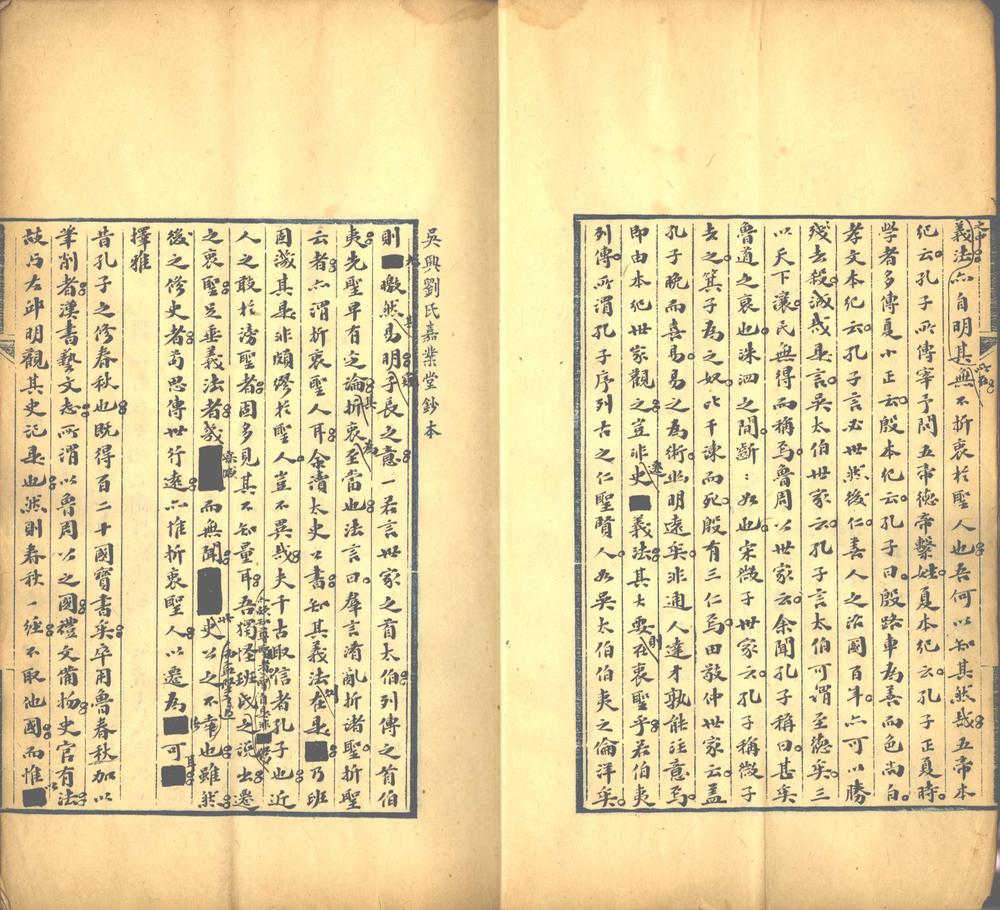 義法亦自明其無不折衷於聖人也吾何以知其然哉五帝本
紀云孔子所傳宰予問五帝德帝繫姓夏本紀云孔子正夏時
學者多傳夏小正云殷本紀云孔子曰殷路車為善而色尚白
孝文本紀云孔子言必世然後仁善人之治國百年亦可以勝
殘去殺誠哉是言吳太伯世家云孔子言太伯可謂至德矣三
以天下讓民無得而稱焉魯周公世家云余聞孔子稱曰甚矣
魯道之衰也洙泗之間斷〻如也宋微子世家云孔子稱微子
去之箕子為之奴比干諫而死殷有三仁焉田敬仲世家云蓋
孔子晚而喜易易之為術幽明遠矣非通人達才孰能注意焉
即由本紀世家觀之豈非史義法其大要在衷聖乎若伯夷
列傳所謂孔子序列古之仁聖賢人如吳太伯伯夷之倫洋矣
吳興劉氏嘉業堂鈔本
則皦然易明子長之意一若言世家之首太伯列傳之首伯
夷先聖早有定論折衷至當也法言曰羣言淆亂折諸聖折聖
云者亦謂折衷聖人耳余讀太史公書知其義法在是乃班
固譏其是非頗繆於聖人豈不異哉夫千古取信者孔子也近
人之敢於謗聖者固多見其不知量耳吾獨怪班氏之說出遷
之衷聖足垂義法者幾而無聞史公之不幸也雖然
後之修史者苟思傳世行遠亦惟折衷聖人以遷為可
擇雅
昔孔子之修春秋也既得百二十國寶書矣卒用魯春秋加以
筆削者漢書藝文志所謂以魯周公之國禮文備物史官有法
故与左邱明觀其史記是也然則春秋一經不取他國而惟